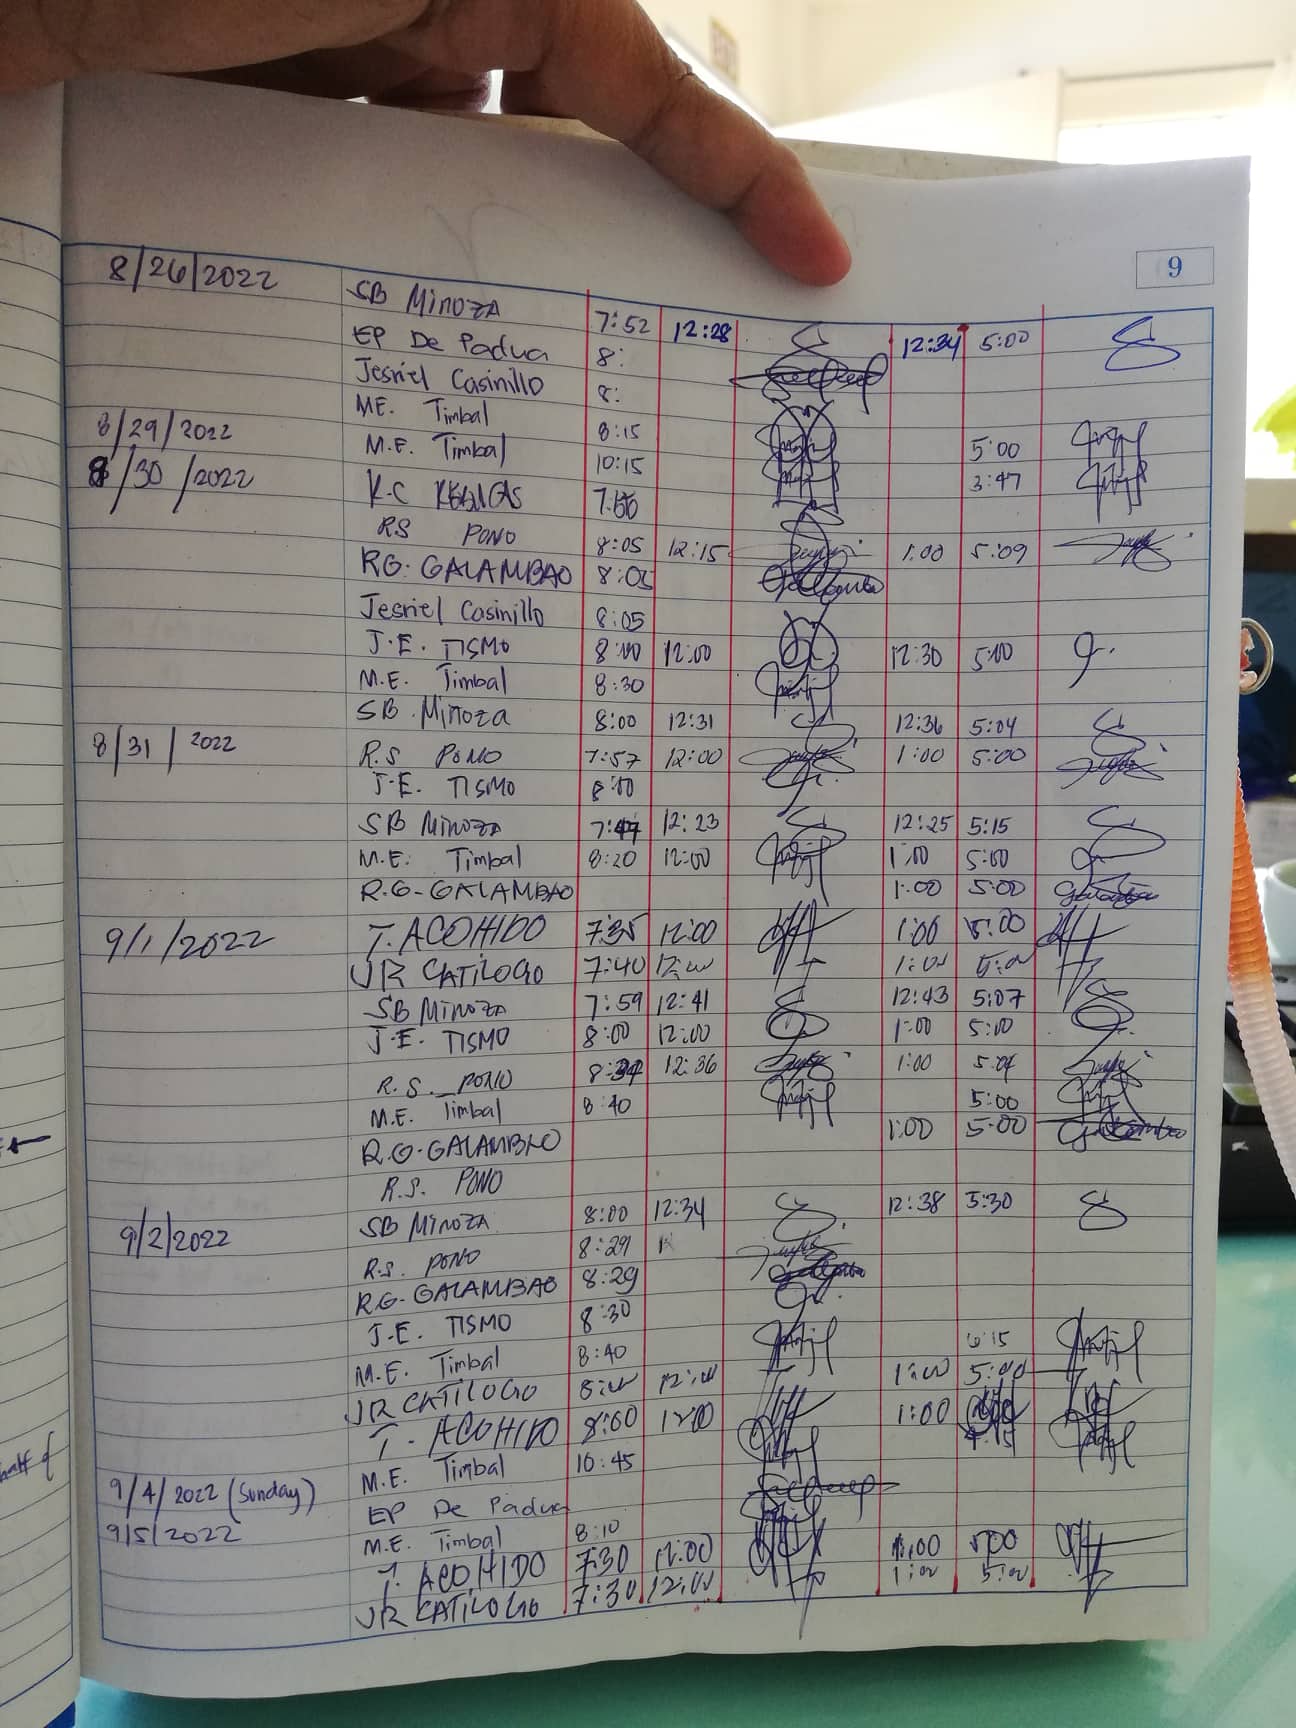 9
8/26/2022 SB Minoza 7:52 12:28 12:34 5:00
EP De Padua 8:
Jesriel Casinillo 8:
ME. Timbal 8:15 5:00
8/29/2022 M.E. Timbal 10:15 3:47
8/30/2022 K.C
RS PONO 8:05 12:15 1:00 5:09
RG. GALAMBAO 8:05
Jesriel Casinillo 8:05
J.E. TISMO 8:00 12:00 12:30 5:00
M.E. Timbal 8:30
SB Minoza 8:00 12:31 12:36 5:04
8/31/2022 R.S PONO 7:57 12:00 1:00 5:00
J.E. TISMO 8:00
SB Minoza 7:47 12:23 12:25 5:15
M.E. Timbal 8:20 12:00 1:00 5:00
R.G. GALAMBAO 1:00 5:00
9/1/2022 T. ACOHIDO 7:35 12:00 1:00 5:00
JR CATILOGO 7:40 12:00 1:00 5:00
SB Minoza 7:59 12:41 12:43 5:07
J.E. TISMO 8:00 12:00 1:00 5:00
R.S. PONO 12:36 1:00 5:04
M.E. Timbal 8:40 5:00
R.G. GALAMBAO 1:00 5:00
R.S. PONO
9/2/2022 SB Minoza 8:00 12:34 12:38 5:30
R.S. PONO 8:29
RG. GALAMBAO 8:29
J.E. TISMO 8:30
M.E. Timbal 8:40
JR CATILOGO 8:00 12:00 1:00 5:00
T. ACOHIDO 8:00 1200 1:00
M.E. Timbal 10:45 4:15
9/4/2022 (Sunday) EP De Padua
9/5/2022 M.E. Timbal 8:10
T. ACOHIDO 7:30 12:00 1:00 5:00
JR CATILOGO 7:30 12:00 1:00 5:00
half of